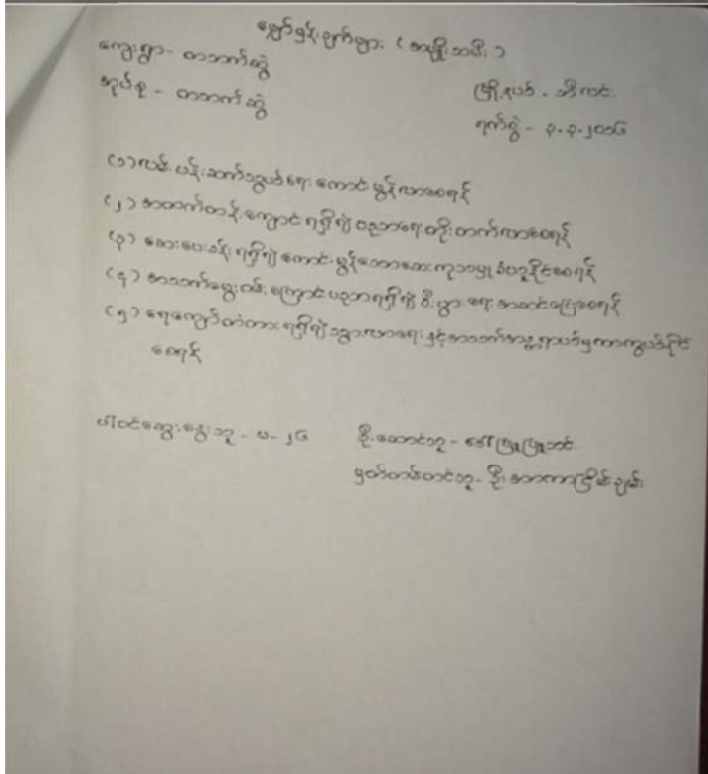 မျှော်မှန်းချက်များ ( အမျိုးသမီး )
ကျေးရွာ - တဘက်ဆွဲ
မြို့နယ် - ဘီးလင်း
အုပ်စု - တဘက်ဆွဲ
ရက်စွဲ - ၃.၃.၂၀၁၆
(၁) လမ်းပန်းဆက်သွယ်ရေး ကောင်းမွန်လာစေရန်
(၂) အထက်တန်းကျောင်း ရရှိ၍ ပညာရေး တိုးတက်လာစေရန်
(၃) ဆေးပေးခန်း ရရှိ၍ ကောင်းမွန်သောဆေးကုသမှု ခံယူနိုင်စေရန်
(၄) အသက်မွေးဝမ်းကြောင်းပညာရရှိ၍ စီးပွားရေး အဆင်ပြေစေရန်
(၅) ရေကျော်တံတား ရရှိ၍ သွားလာရေးနှင့် အသက်အန္တရာယ်မှကာကွယ်နိုင်
စေရန်
ပါဝင်ဆွေးနွေးသူ - မ - ၂၆
ဦးဆောင်သူ - ဒေါ်ဖြူဖြူသင်း
မှတ်တမ်းတင်သူ - ဦးအာကာငြိမ်းချမ်း